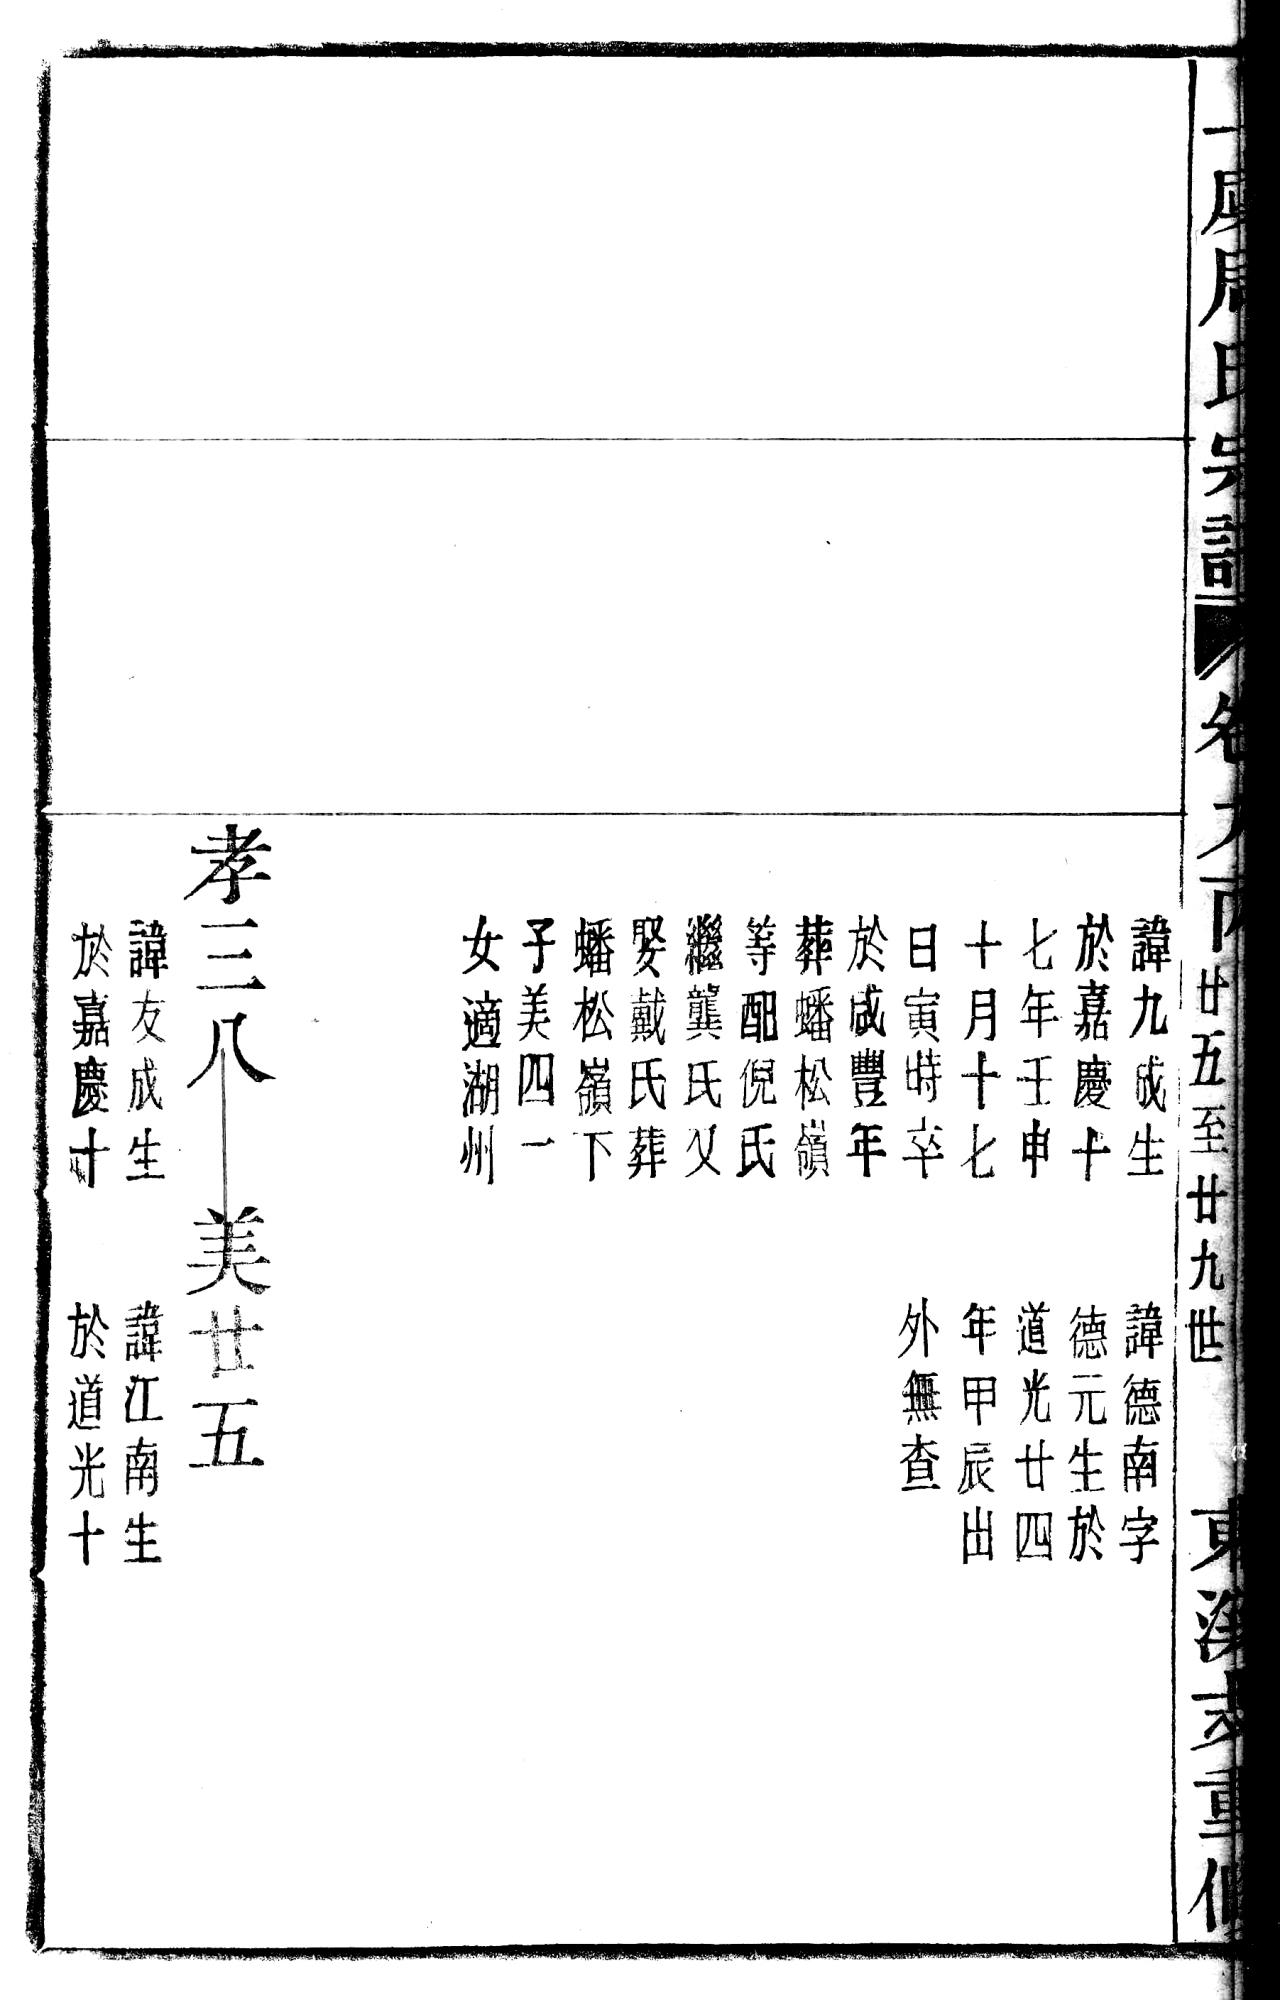 氏宗譜 卷九 丙廿五至廿九世 東溪 重修
諱九成生
於嘉慶十
七年壬申
十月十七
日寅時卒
於咸豐年
葬蟠松嶺
等配倪氏
繼龔氏又
娶戴氏葬
蟠松嶺下
子美四一
女適湖州
諱德南字
德元生於
道光廿四
年甲辰出
外無查
孝三八 美廿五
諱友成生
於嘉慶十
諱江南生
於道光十